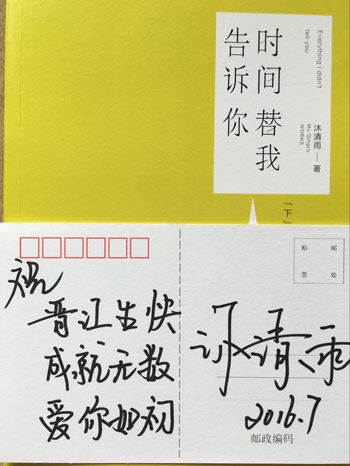 Everything I didn't
tell you
时间替我
告诉你
沐清雨—著
Mu Qingyu
WORKS
「下」
贴 邮
票 处
祝
晋江生快
成就无数
爱你如初
沐清雨
2016.7
邮政编码